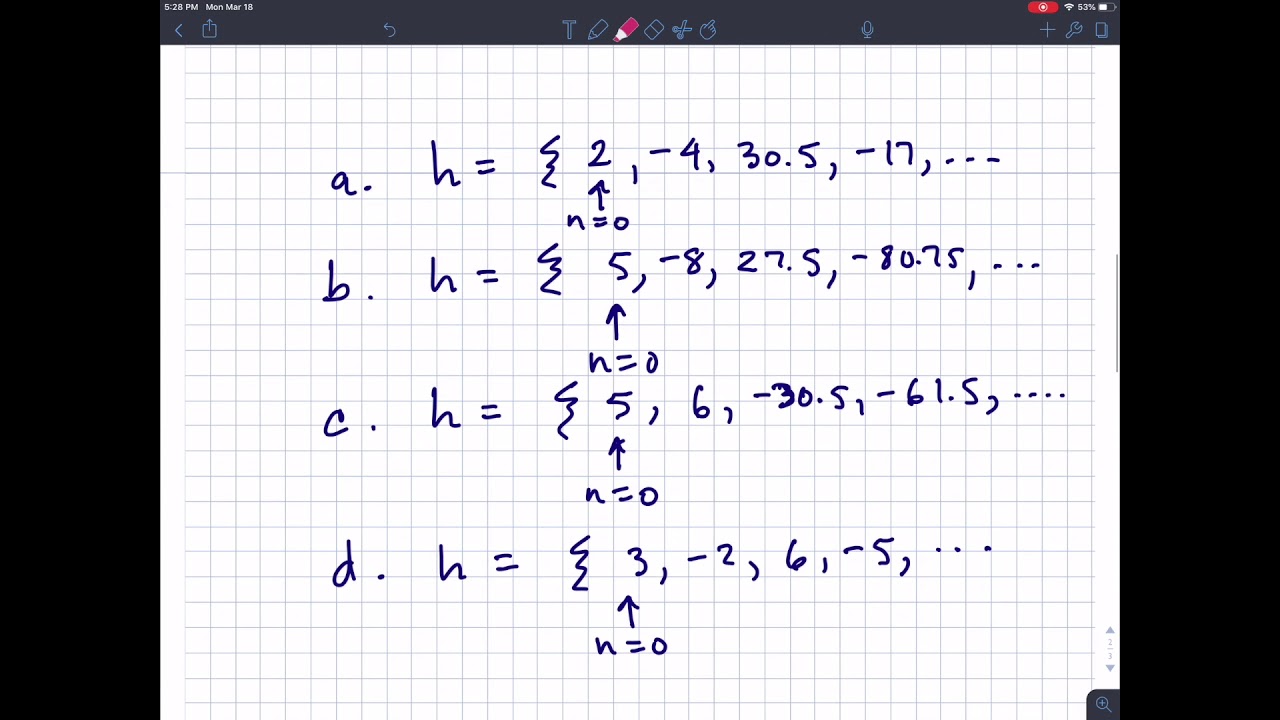 5:28 PM Mon Mar 18
53%
T
a. h = { 2, -4, 30.5, -17, ...
n=0
b. h = { 5, -8, 27.5, -80.75, ...
n=0
c. h = { 5, 6, -30.5, -61.5, ....
n=0
d. h = { 3, -2, 6, -5, ...
n=0
2
3